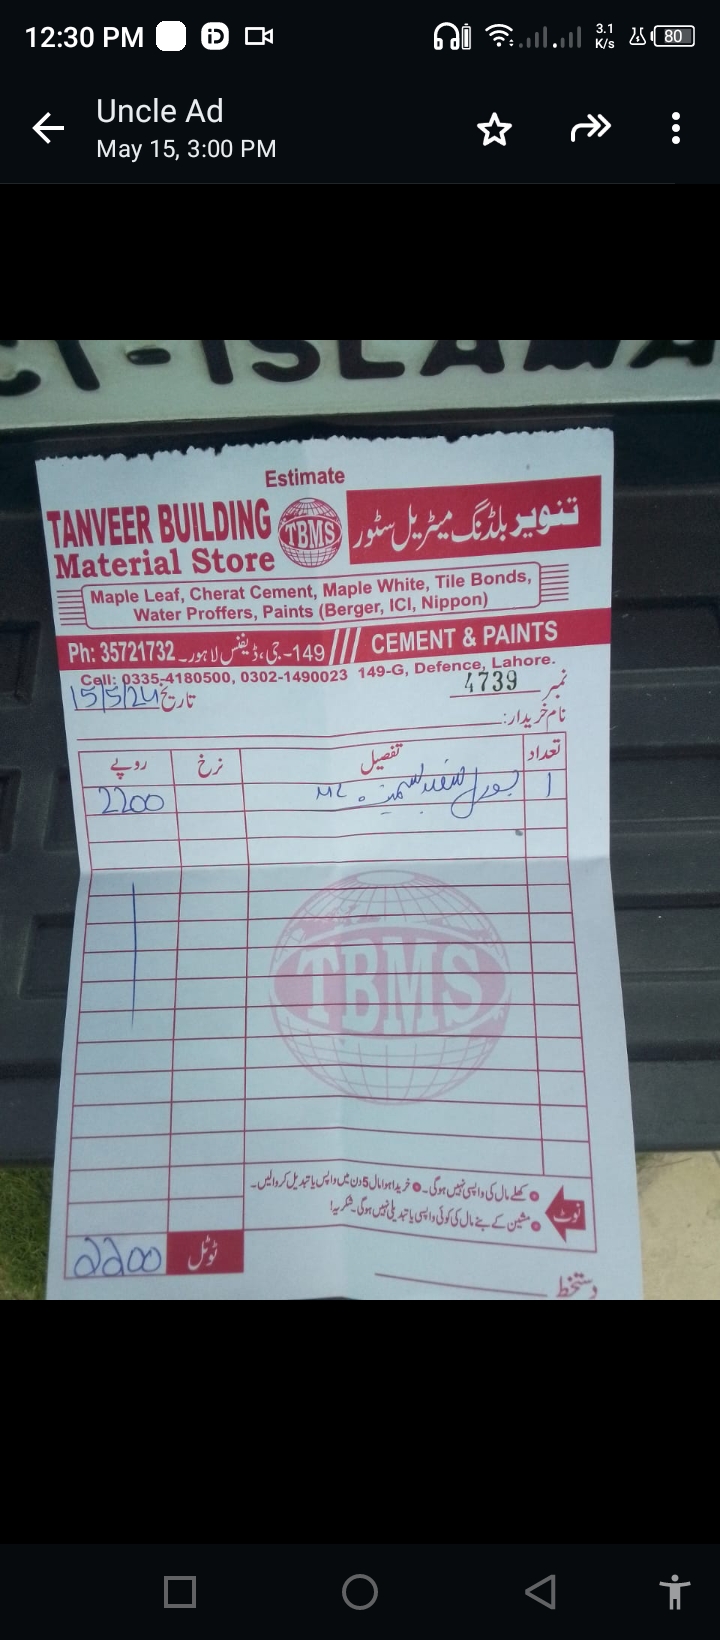 12:30 PM
3.1
K/s
80
Uncle Ad
May 15, 3:00 PM
Estimate
TANVEER BUILDING
Material Store
TBMS
تنویر بلڈنگ میٹریل سٹور
Maple Leaf, Cherat Cement, Maple White, Tile Bonds,
Water Proffers, Paints (Berger, ICI, Nippon)
Ph: 35721732 149-جی، ڈیفنس لاہور۔ /// CEMENT & PAINTS
Cell: 0335-4180500, 0302-1490023 149-G, Defence, Lahore.
نمبر 4739
تاریخ 15/5/24
نام خریدار:
تعداد تفصیل نرخ روپے
1 سفید ML 2200
TBMS
نوٹ
● کھلے مال کی واپسی نہیں ہوگی۔ ● خریدا ہوا مال 5 دن میں واپس یا تبدیل کروالیں۔
● مشین کے بنے مال کی کوئی واپسی یا تبدیلی نہیں ہوگی۔ شکریہ!
ٹوٹل 2200
دستخط